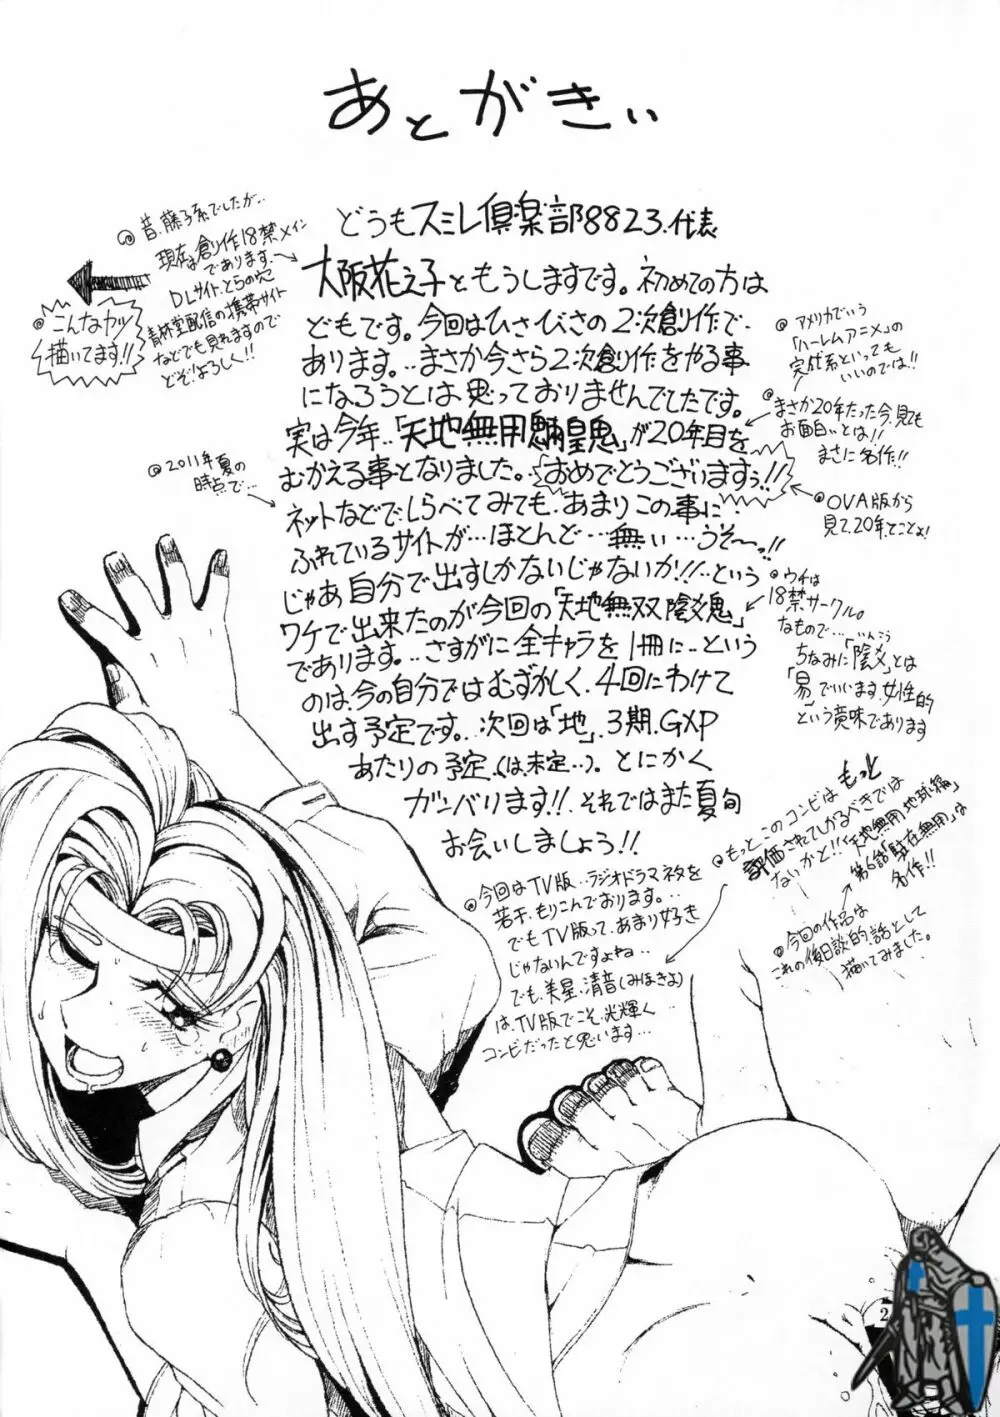 あとがきぃ
どうもスミレ倶楽部8823.代表
大阪花之子ともうしますです。初めての方は
どもです。今回はひさびさの2次創作で
あります。‥まさか今さら2次創作をやる事
になろうとは思っておりませんでしたです。
実は今年‥「天地無用魎皇鬼」が20年目を
むかえる事となりました。おめでとうございますぅ!!
ネットなどで、しらべてみても、あまりこの事に
ふれているサイトが…ほとんど…無い…うそ〜っ!!
じゃあ自分で出すしかないじゃないか!!‥という
ワケで出来たのが今回の「天地無双陰爻鬼」
であります。‥さすがに全キャラを1冊に‥という
のは、今の自分ではむずかしく、4回にわけて
出す予定です。次回は「地」、3期、GXP
あたりの予定、(は、未定‥)。とにかく
ガンバります!!.それではまた夏旬
お会いしましょう!!
◎昔、藤子系でしたが‥
現在は創作18禁メイン
であります。
DLサイト、とらの穴
青林堂配信の携帯サイト
などでも見れますので
どぞ!よろしく!!
◎こんなカンジ
描いてます!!
◎2011年夏の
時点で…
◎アメリカでいう
「ハーレムアニメ」の
完成系といっても
いいのでは!!
◎まさか20年たった今、見ても
お面白いとは!!
まさに名作!!
◎OVA版から
見て、20年、てことよ!
◎ウチは
18禁.サークル。
なもので…
いんこう
ちなみに「陰爻」とは
「易」でいいます、女性的
という意味であります
◎もっとこのコンビは もっと
評価されてしかるべきでは
ないかと!!「天地無用・地球編」
第6話「駐在無用」は
名作!!
◎今回の作品は
これの後日談的、話として
描いてみました。
◎今回はTV版‥ラジオドラマネタを
若干、もりこんでおります。…
でもTV版って、あまり好き
じゃないんですよね…
でも、美星・清音(みほきよ)
は、TV版でこそ、光輝く
コンビだったと思います…
2